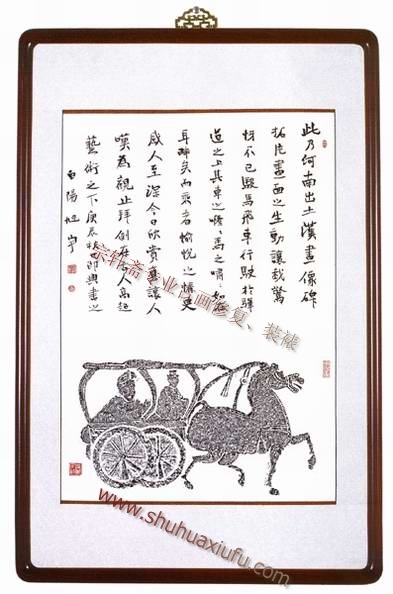 此乃河南出土漢畫像碑
拓片畫面之生動讓我驚
訝不已駿馬飛車行駛於驛
道之上其車之噜馬之嘯如在
耳聆矣而乘者愉悦之情更
感人至深今日欣賞真讓人
嘆為觀止拜倒在古人高超
藝術之下庚辰秋即興書之
白陽
宗轩斋专业书画修复、装裱
www.shuhuaxiufu.com